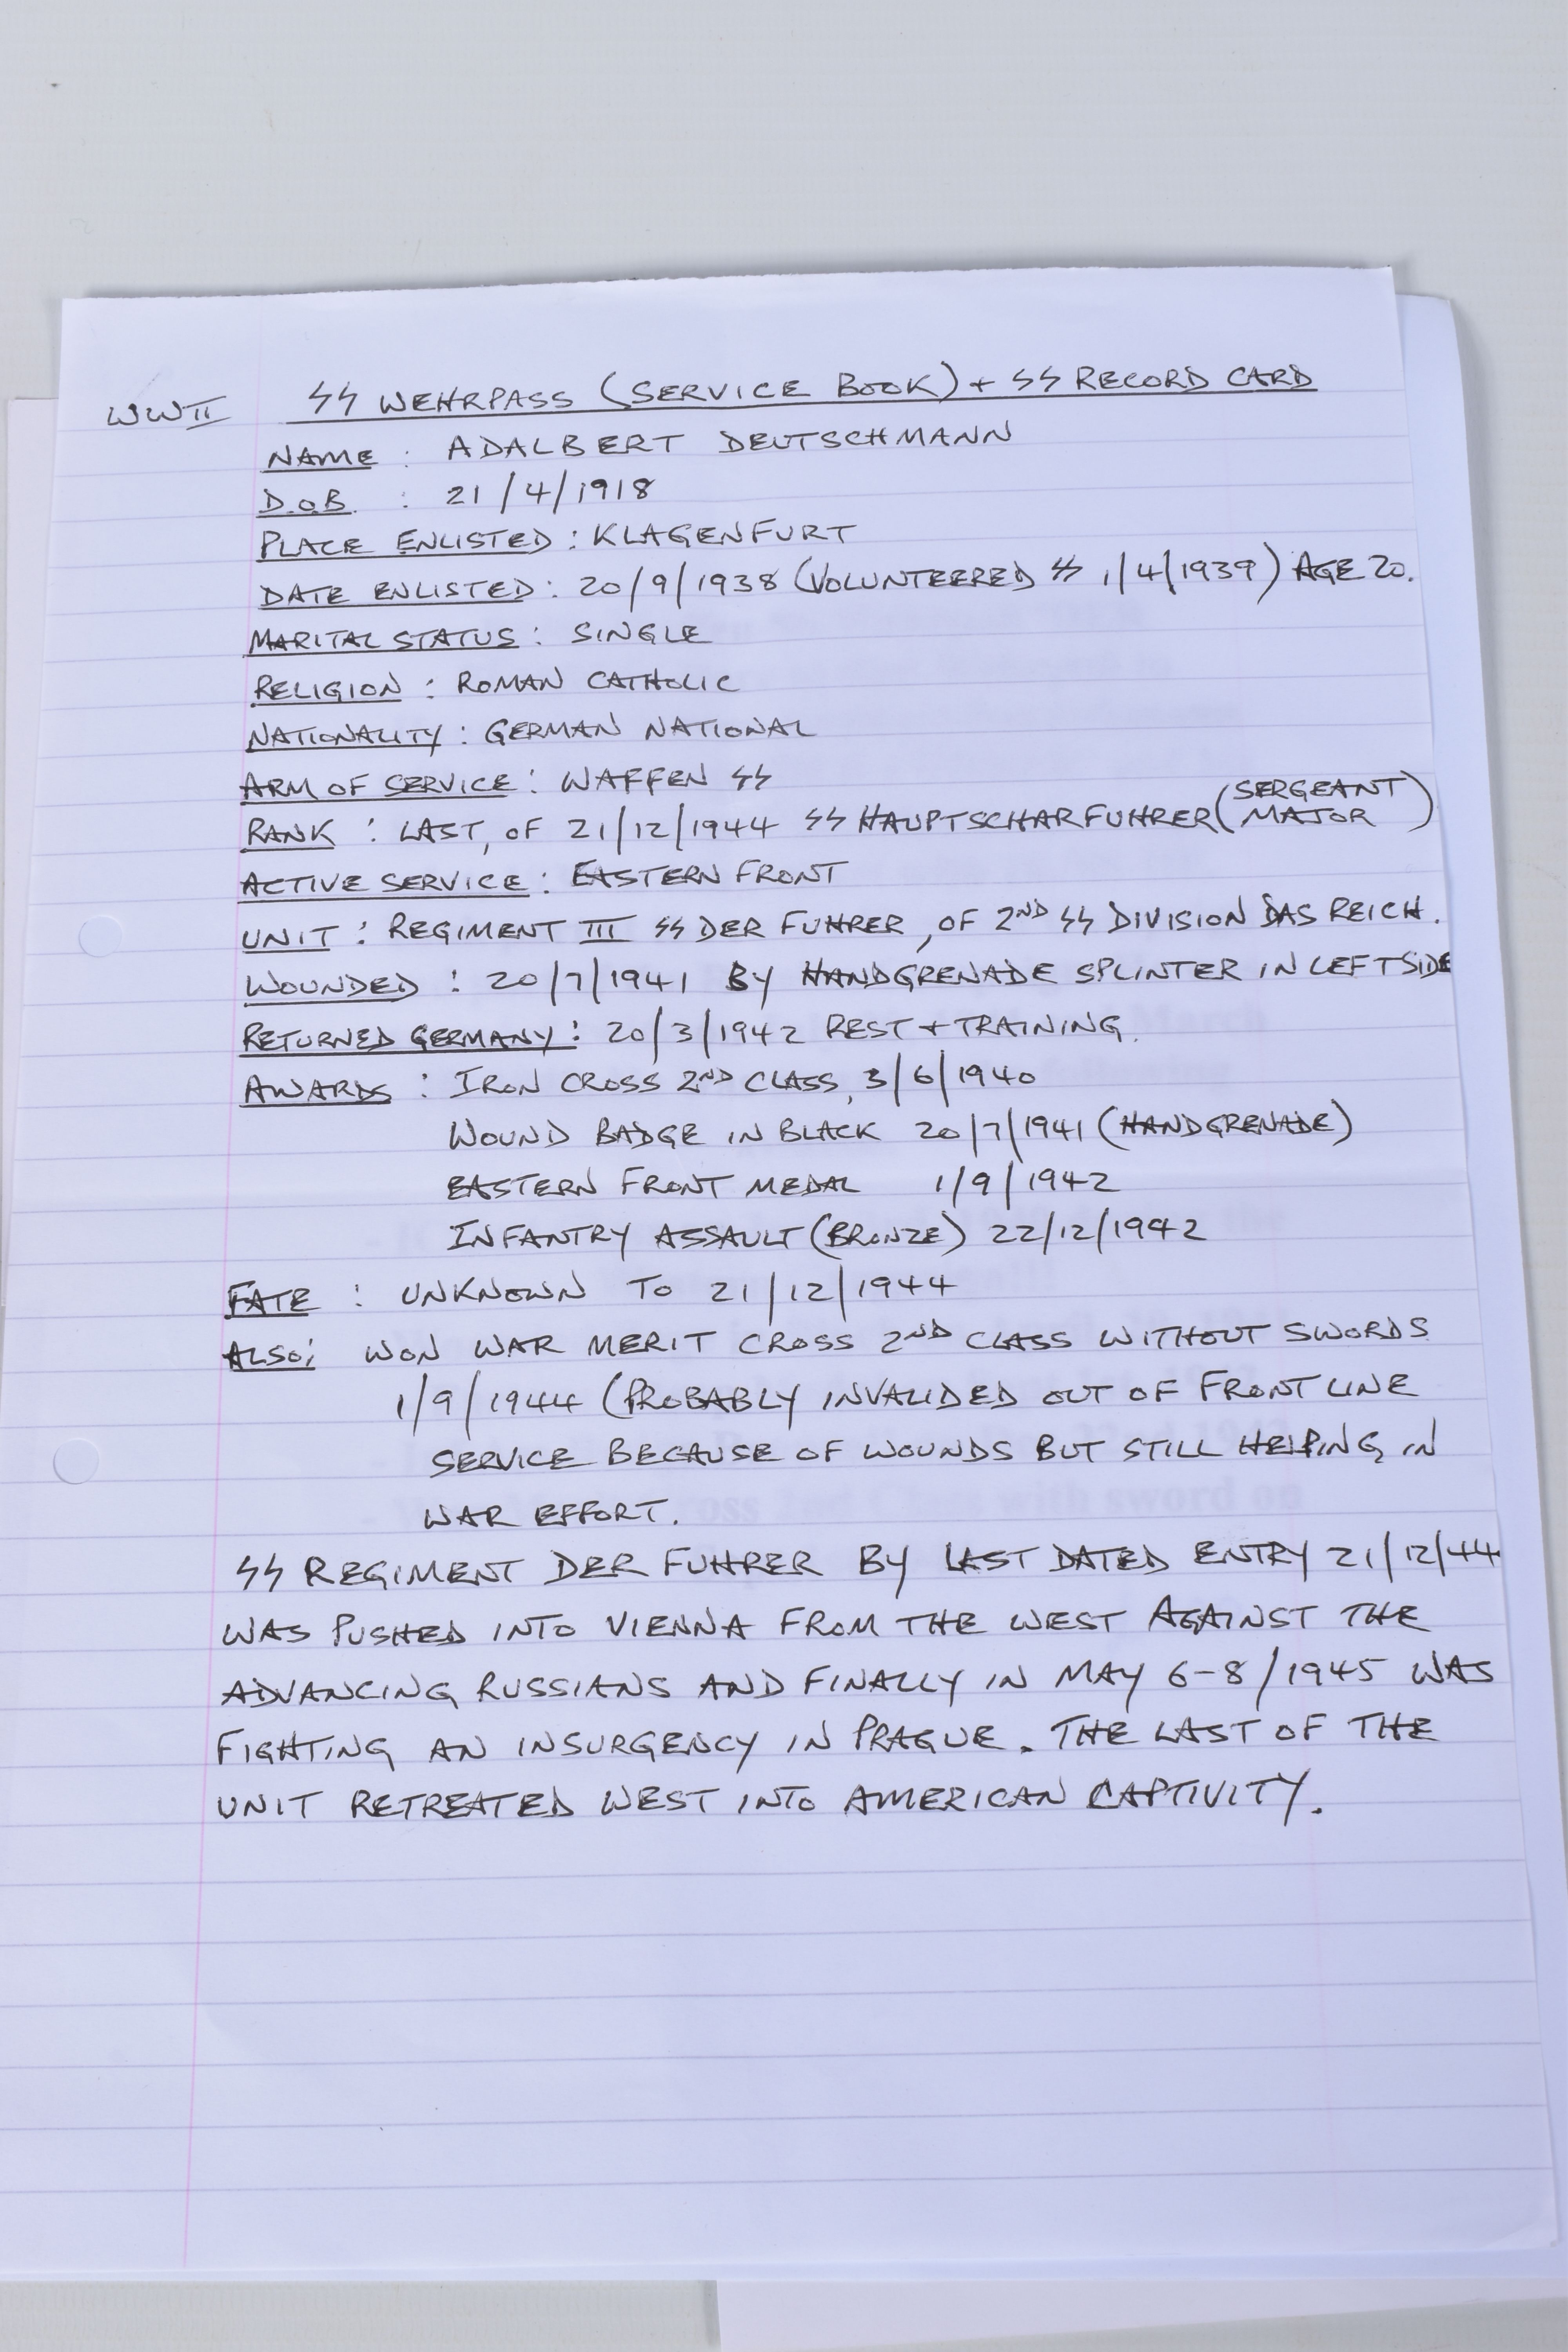 WWII SS WEHRPASS (SERVICE BOOK) + SS RECORD CARD
NAME : ADALBERT DEUTSCHMANN
D.O.B. : 21/4/1918
PLACE ENLISTED : KLAGENFURT
DATE ENLISTED : 20/9/1938 (VOLUNTEERED SS 1/4/1939) AGE 20.
MARITAL STATUS : SINGLE
RELIGION : ROMAN CATHOLIC
NATIONALITY : GERMAN NATIONAL
ARM OF SERVICE : WAFFEN SS
RANK : LAST, OF 21/12/1944 SS HAUPTSCHARFUHRER (SERGEANT MAJOR)
ACTIVE SERVICE : EASTERN FRONT
UNIT : REGIMENT III SS DER FUHRER, OF 2ND SS DIVISION DAS REICH.
WOUNDED : 20/7/1941 BY HANDGRENADE SPLINTER IN LEFT SIDE
RETURNED GERMANY : 20/3/1942 REST + TRAINING.
AWARDS : IRON CROSS 2ND CLASS, 3/6/1940
WOUND BADGE IN BLACK 20/7/1941 (HANDGRENADE)
EASTERN FRONT MEDAL 1/9/1942
INFANTRY ASSAULT (BRONZE) 22/12/1942
FATE : UNKNOWN TO 21/12/1944
ALSO: WON WAR MERIT CROSS 2ND CLASS WITHOUT SWORDS
1/9/1944 (PROBABLY INVALIDED OUT OF FRONT LINE
SERVICE BECAUSE OF WOUNDS BUT STILL HELPING IN
WAR EFFORT.
SS REGIMENT DER FUHRER BY LAST DATED ENTRY 21/12/44
WAS PUSHED INTO VIENNA FROM THE WEST AGAINST THE
ADVANCING RUSSIANS AND FINALLY IN MAY 6-8/1945 WAS
FIGHTING AN INSURGENCY IN PRAGUE. THE LAST OF THE
UNIT RETREATED WEST INTO AMERICAN CAPTIVITY.